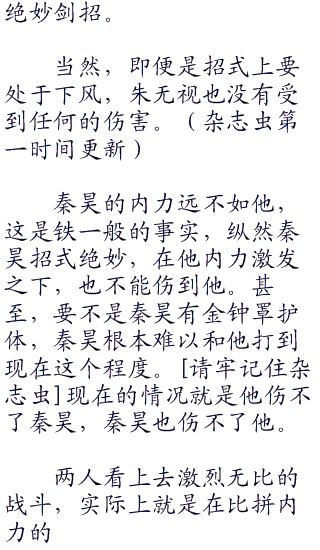 绝妙剑招。
当然，即便是招式上要
处于下风，朱无视也没有受
到任何的伤害。（杂志虫第
一时间更新）
秦昊的内力远不如他，
这是铁一般的事实，纵然秦
昊招式绝妙，在他内力激发
之下，也不能伤到他。甚
至，要不是秦昊有金钟罩护
体，秦昊根本难以和他打到
现在这个程度。[请牢记住杂
志虫]现在的情况就是他伤不
了秦昊，秦昊也伤不了他。
两人看上去激烈无比的
战斗，实际上就是在比拼内
力的